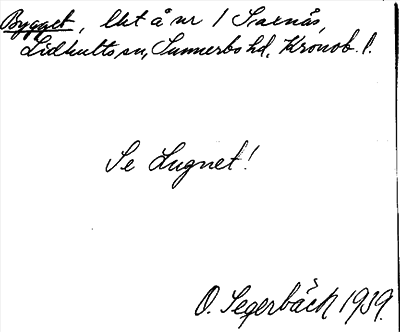 Bygget, lht å nr 1 Svenås,
Lidhults sn, Sunnerbo hd, Kronob. l.
Se Lugnet!
O. Segerbäck 1939.